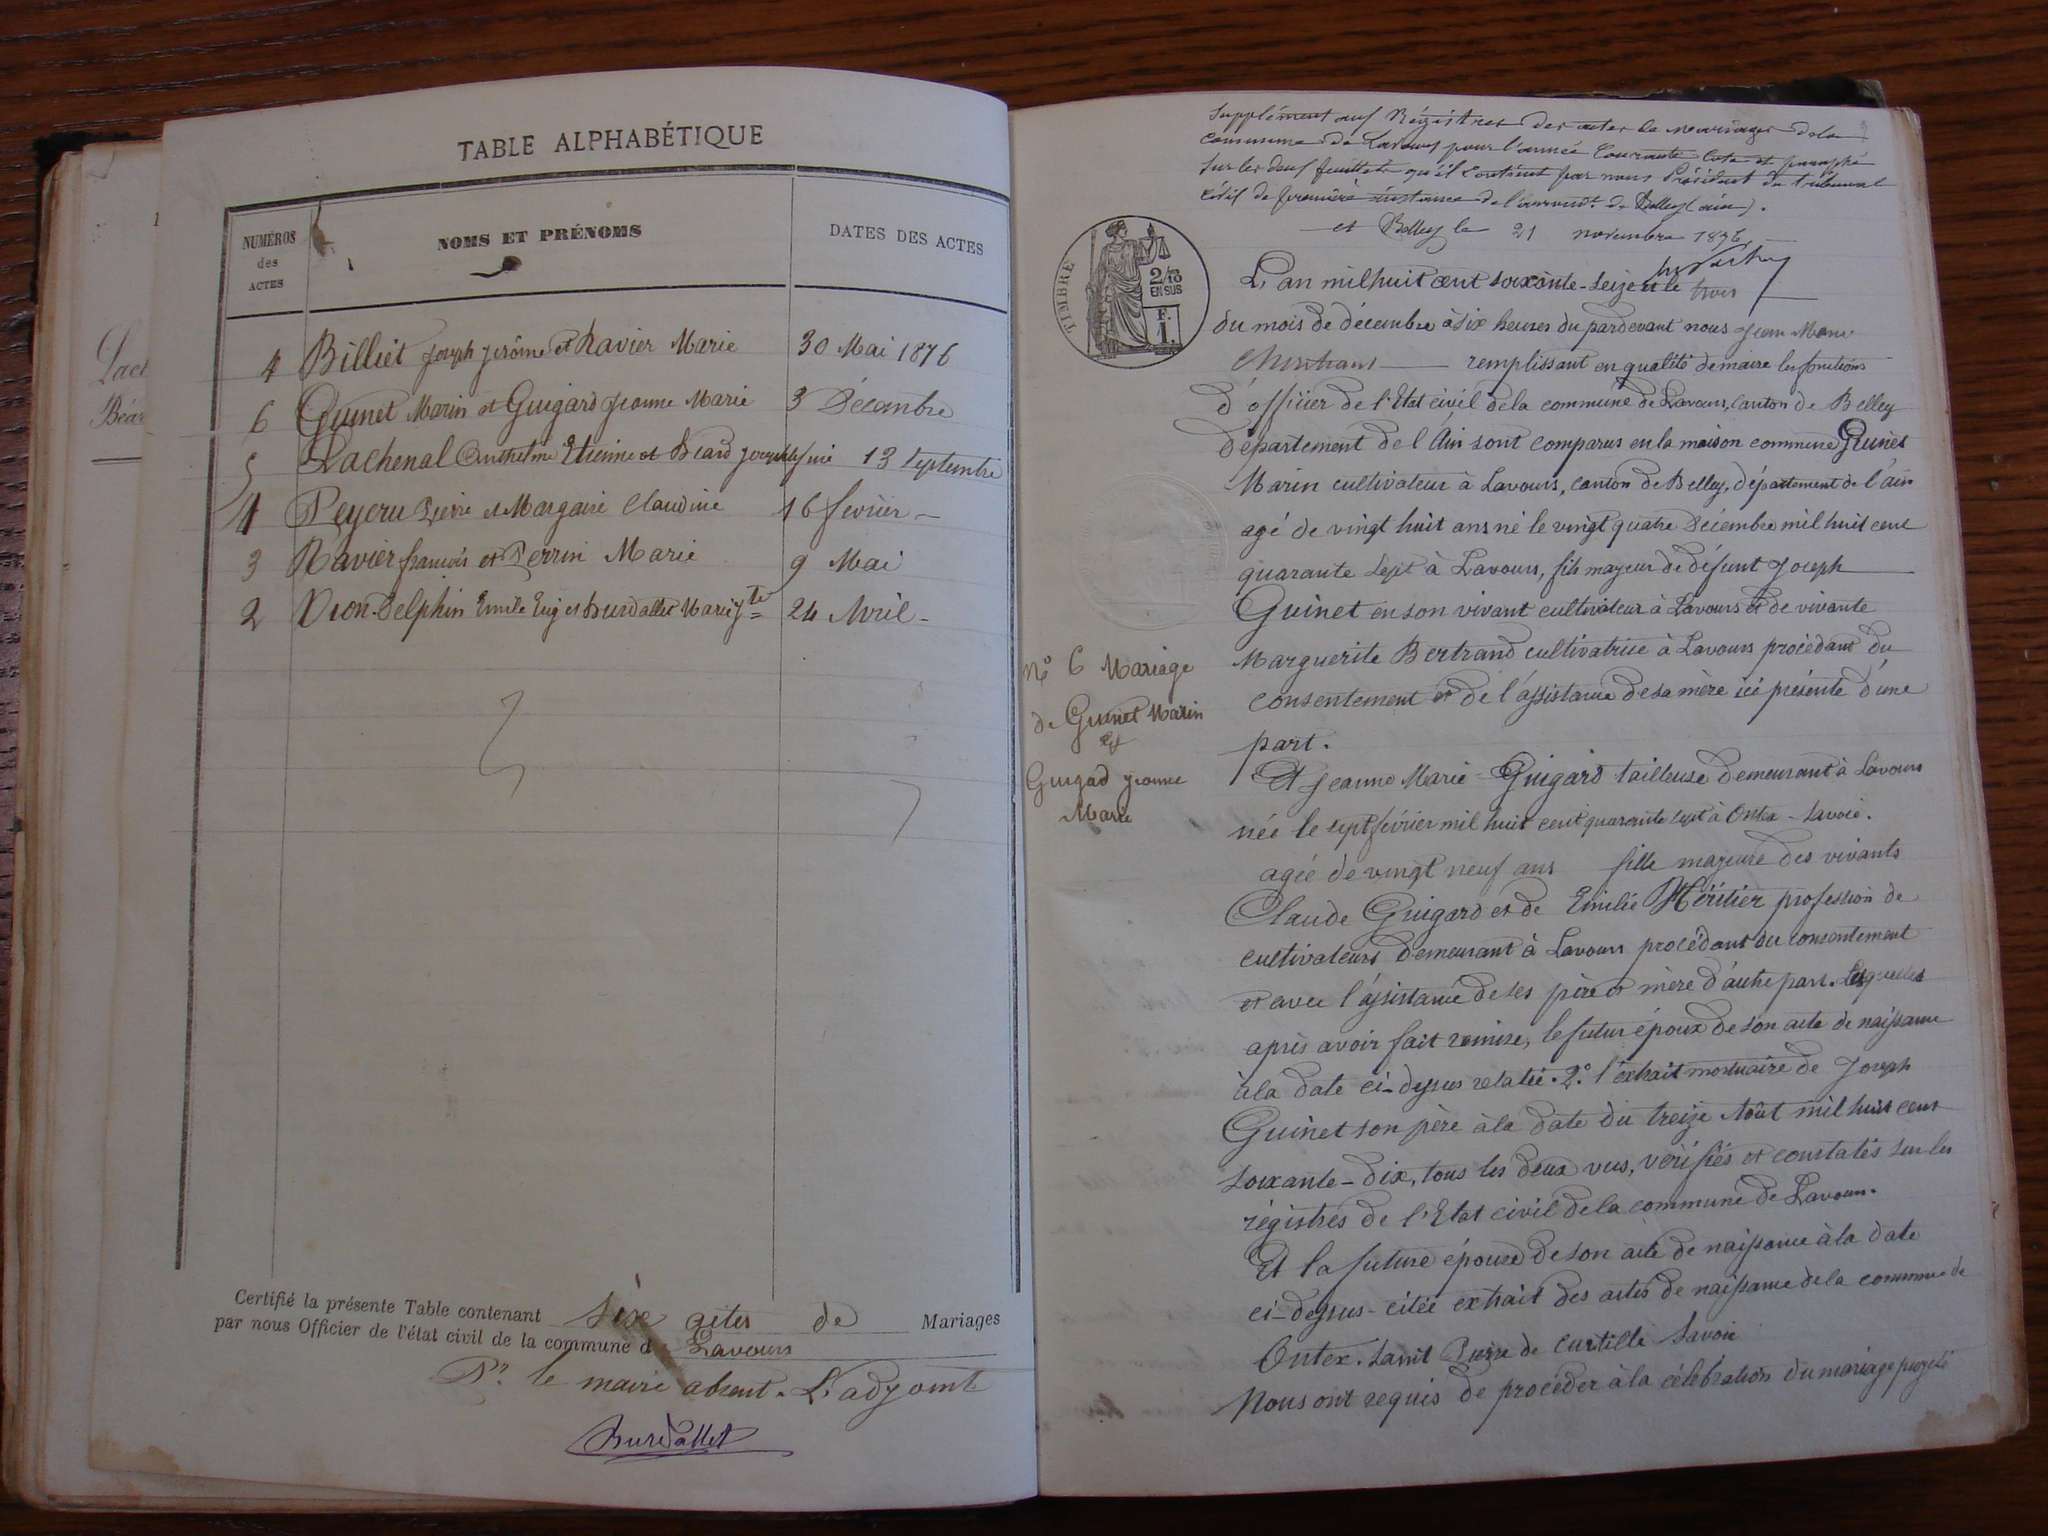 TABLE ALPHABÉTIQUE
NUMÉROS des ACTES
NOMS ET PRÉNOMS
DATES DES ACTES
4 Billiet Joseph Jérôme et Ravier Marie 30 Mai 1876
6 Guinet Marin et Guigard Jeanne Marie 3 Décembre
5 Lachenal Anthelme Etienne et Béard Josephine 13 septembre
1 Peyeru Pierre et Margaire Claudine 16 février
3 Ravier françois et Perrin Marie 9 Mai
2 Vion-Delphin Emile Eug et Burdallet Marie Jte 24 Avril
Certifié la présente Table contenant six actes de Mariages
par nous Officier de l'état civil de la commune d Lavours
Pr. le maire absent. L'adjoint
Burdallet
Supplément aux Régistres des actes de mariages de la
commune de Lavours pour l'année Courante Coté et paraphé
sur les deux feuillets qu'il Contient par nous Président du tribunal
Civil de première instance de l'arrondt. de Belley (ain).
et Belley le 21 novembre 1876
TIMBRE
2/10
EN SUS
F.
1.
L'an mil huit cent soixante-seize et le trois
du mois de décembre à six heures du pardevant nous Jean Marie
remplissant en qualité de maire les fonctions
d'officier de l'Etat civil de la commune de Lavours, canton de Belley
département de l'Ain sont comparus en la maison commune Guinet
Marin cultivateur à Lavours, canton de Belley, département de l'ain
agé de vingt huit ans né le vingt quatre Décembre mil huit cent
quarante sept à Lavours, fils majeur de défunt Joseph
Guinet en son vivant cultivateur à Lavours et de vivante
Marguerite Bertrand cultivatrice à Lavours procédant du
consentement et de l'assistance de sa mère ici présente d'une
part.
No 6 Mariage
de Guinet Marin
et
Guigad Jeanne
Marie
Et Jeanne Marie Guigard tailleuse demeurant à Lavours
née le sept février mil huit cent quarante sept à Ontex - Savoie.
agée de vingt neuf ans fille majeure des vivants
Claude Guigard et de Emilie Héritier profession de
cultivateurs demeurant à Lavours procédant du consentement
et avec l'assistance de ses père et mère d'autre part. Lesquelles
après avoir fait remise, le futur époux de son acte de naissance
à la date ci-dessus relatée. 2.° l'extrait mortuaire de Joseph
Guinet son père à la date du treize Août mil huit cent
soixante-dix, tous les deux vus, vérifiés et constatés sur les
régistres de l'Etat civil de la commune de Lavours.
Et la future épouse de son acte de naissance à la date
ci-dessus-citée extrait des actes de naissance de la commune de
Ontex. Saint Pierre de Curtille Savoie
Nous ont requis de procéder à la célébration du mariage projeté